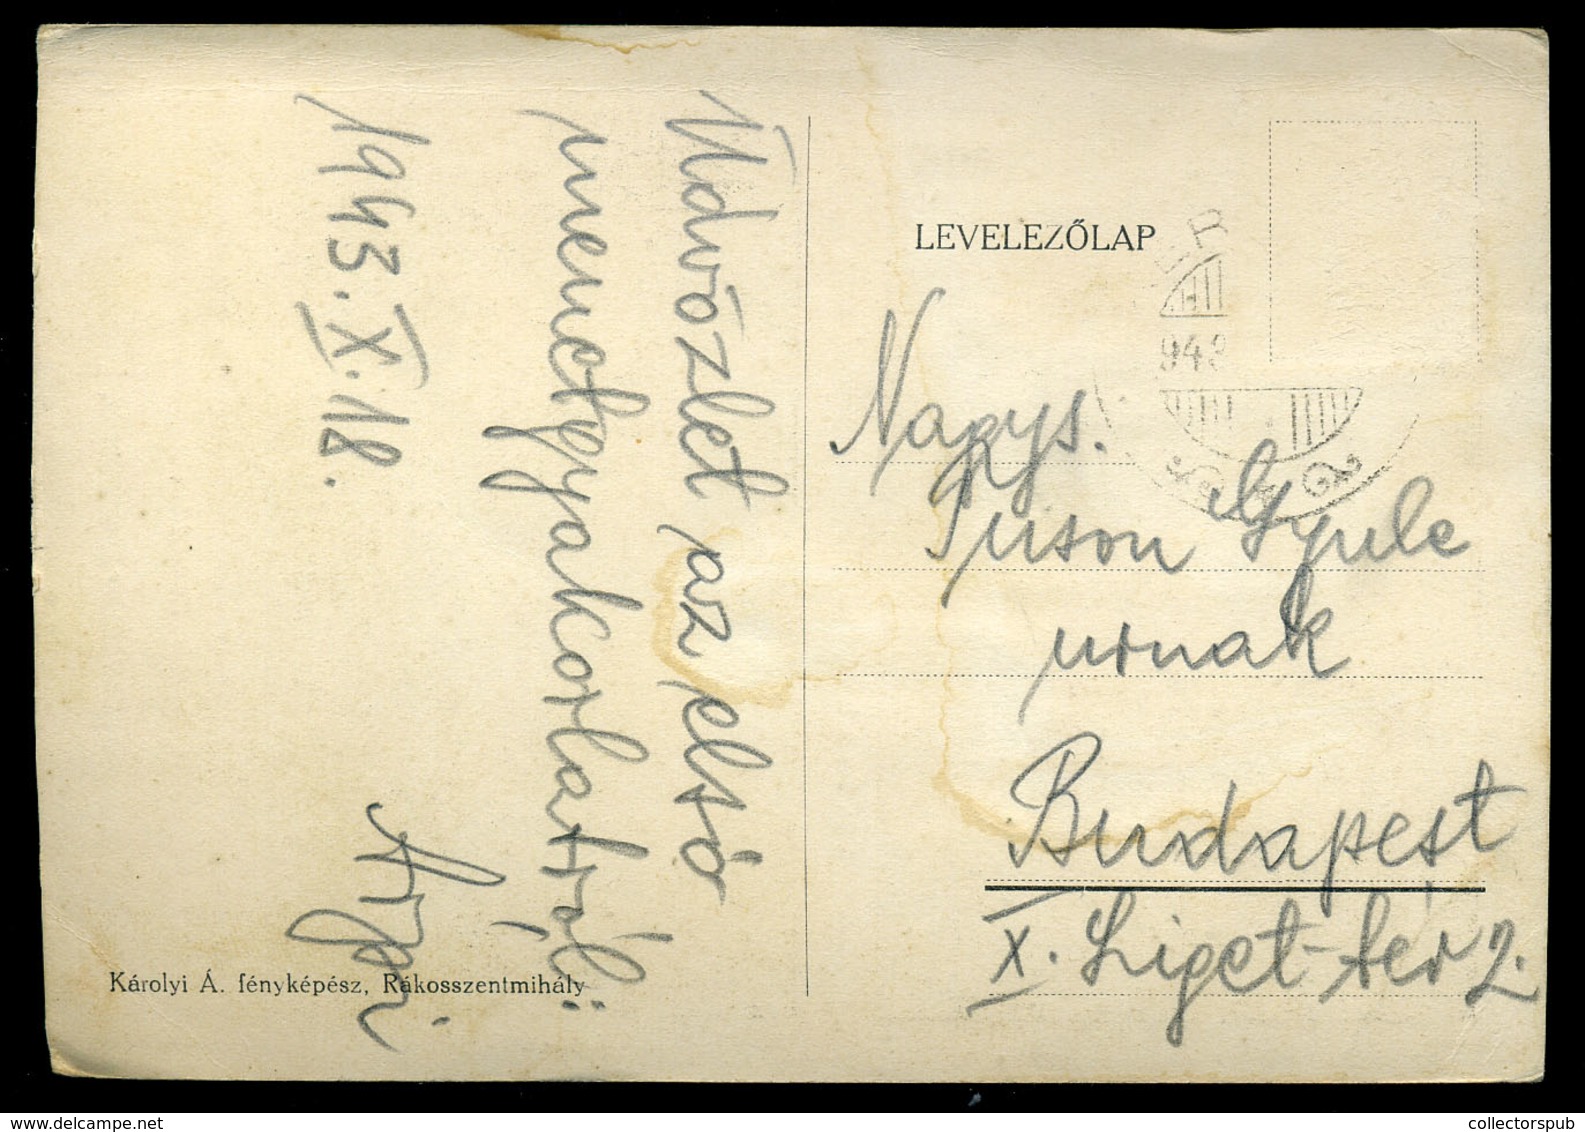 Üdvözlet az első
menetgyakorlatról:
1943. X. 18.
Árpi
Károlyi Á. fényképész, Rákosszentmihály
LEVELEZŐLAP
943
Nagys.
Tuson Gyula
urnak
Budapest
X. Liget-tér 2.
www.delcampe.net
collectorspub